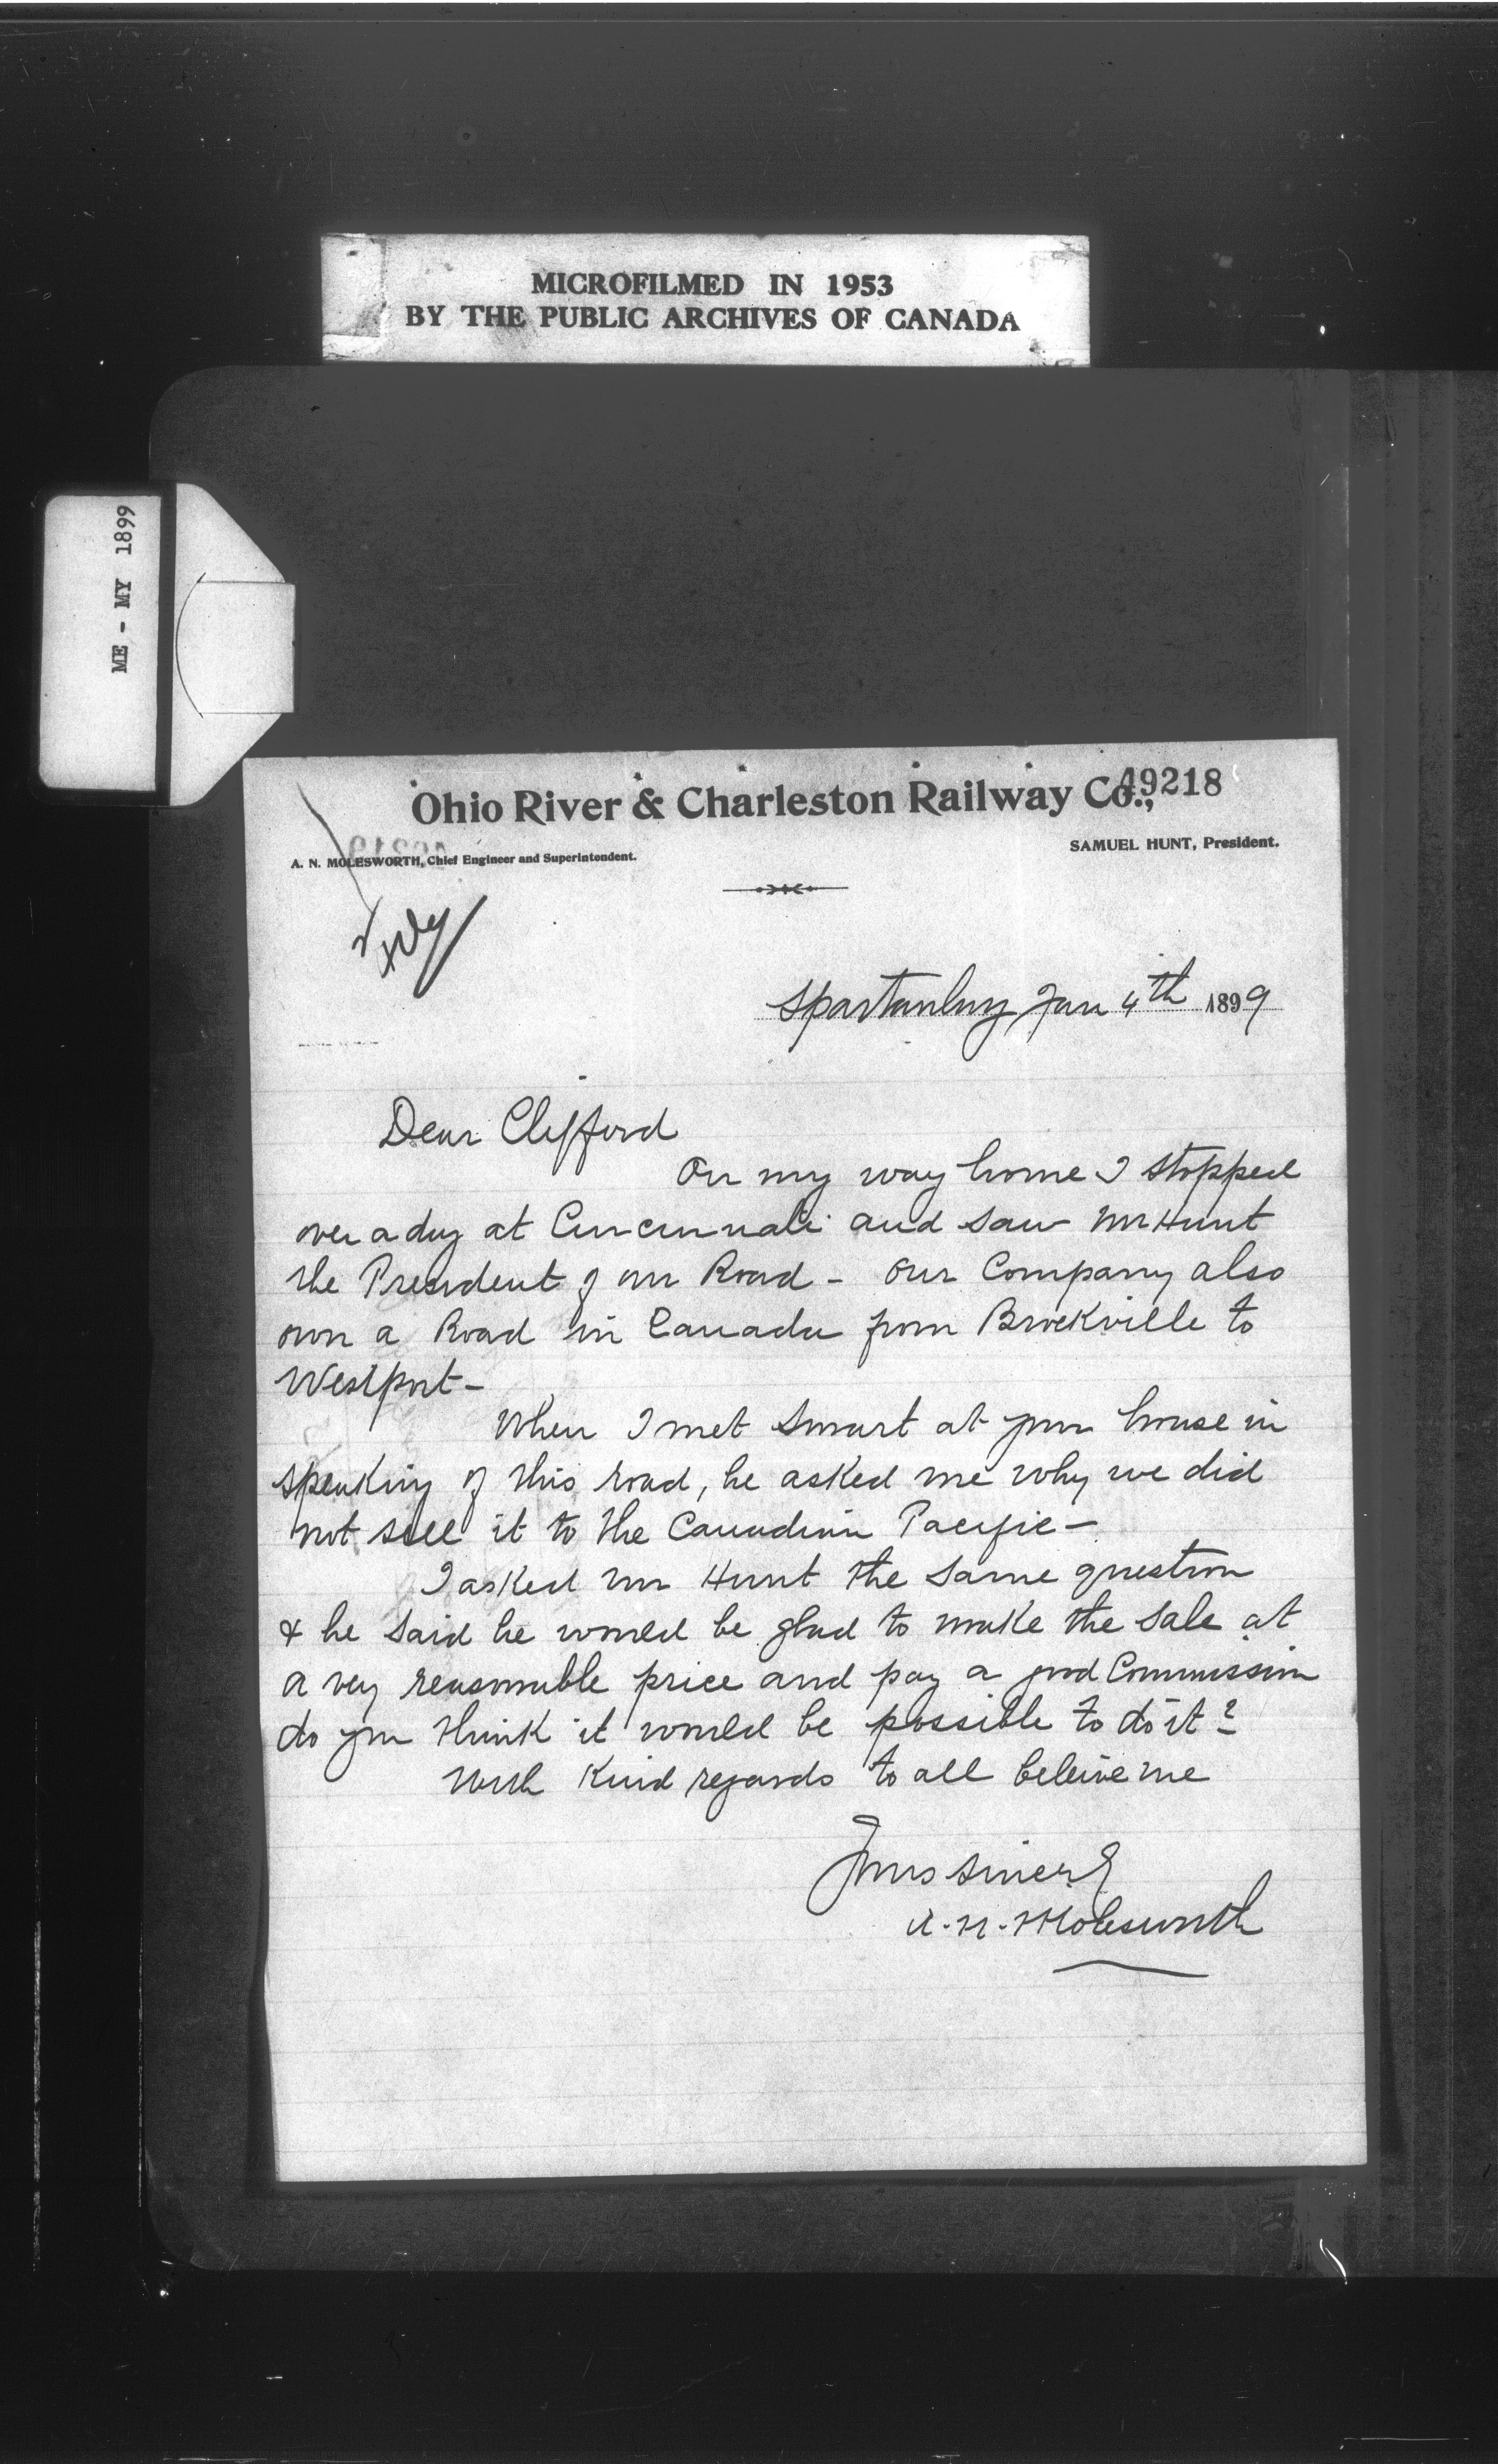 MICROFILMED IN 1953
BY THE PUBLIC ARCHIVES OF CANADA
ME - MY 1899
Ohio River & Charleston Railway Co.,
49218
SAMUEL HUNT, President.
A. N. MOLESWORTH, Chief Engineer and Superintendent.
Spartanburg Jan 4th 1899
Dear Clifford
On my way home I stopped
over a day at Cincinnati and saw Mr Hunt
the President of our Road - Our Company also
own a Road in Canada from Brockville to
Westport -
When I met Smart at your house in
speaking of this road, he asked me why we did
not sell it to the Canadian Pacific -
I asked Mr Hunt the same question
& he said he would be glad to make the sale at
a very reasonable price and pay a good Commission
do you think it would be possible to do it?
With Kind regards to all beleive me
Yours sincerely
A. N. Molesworth